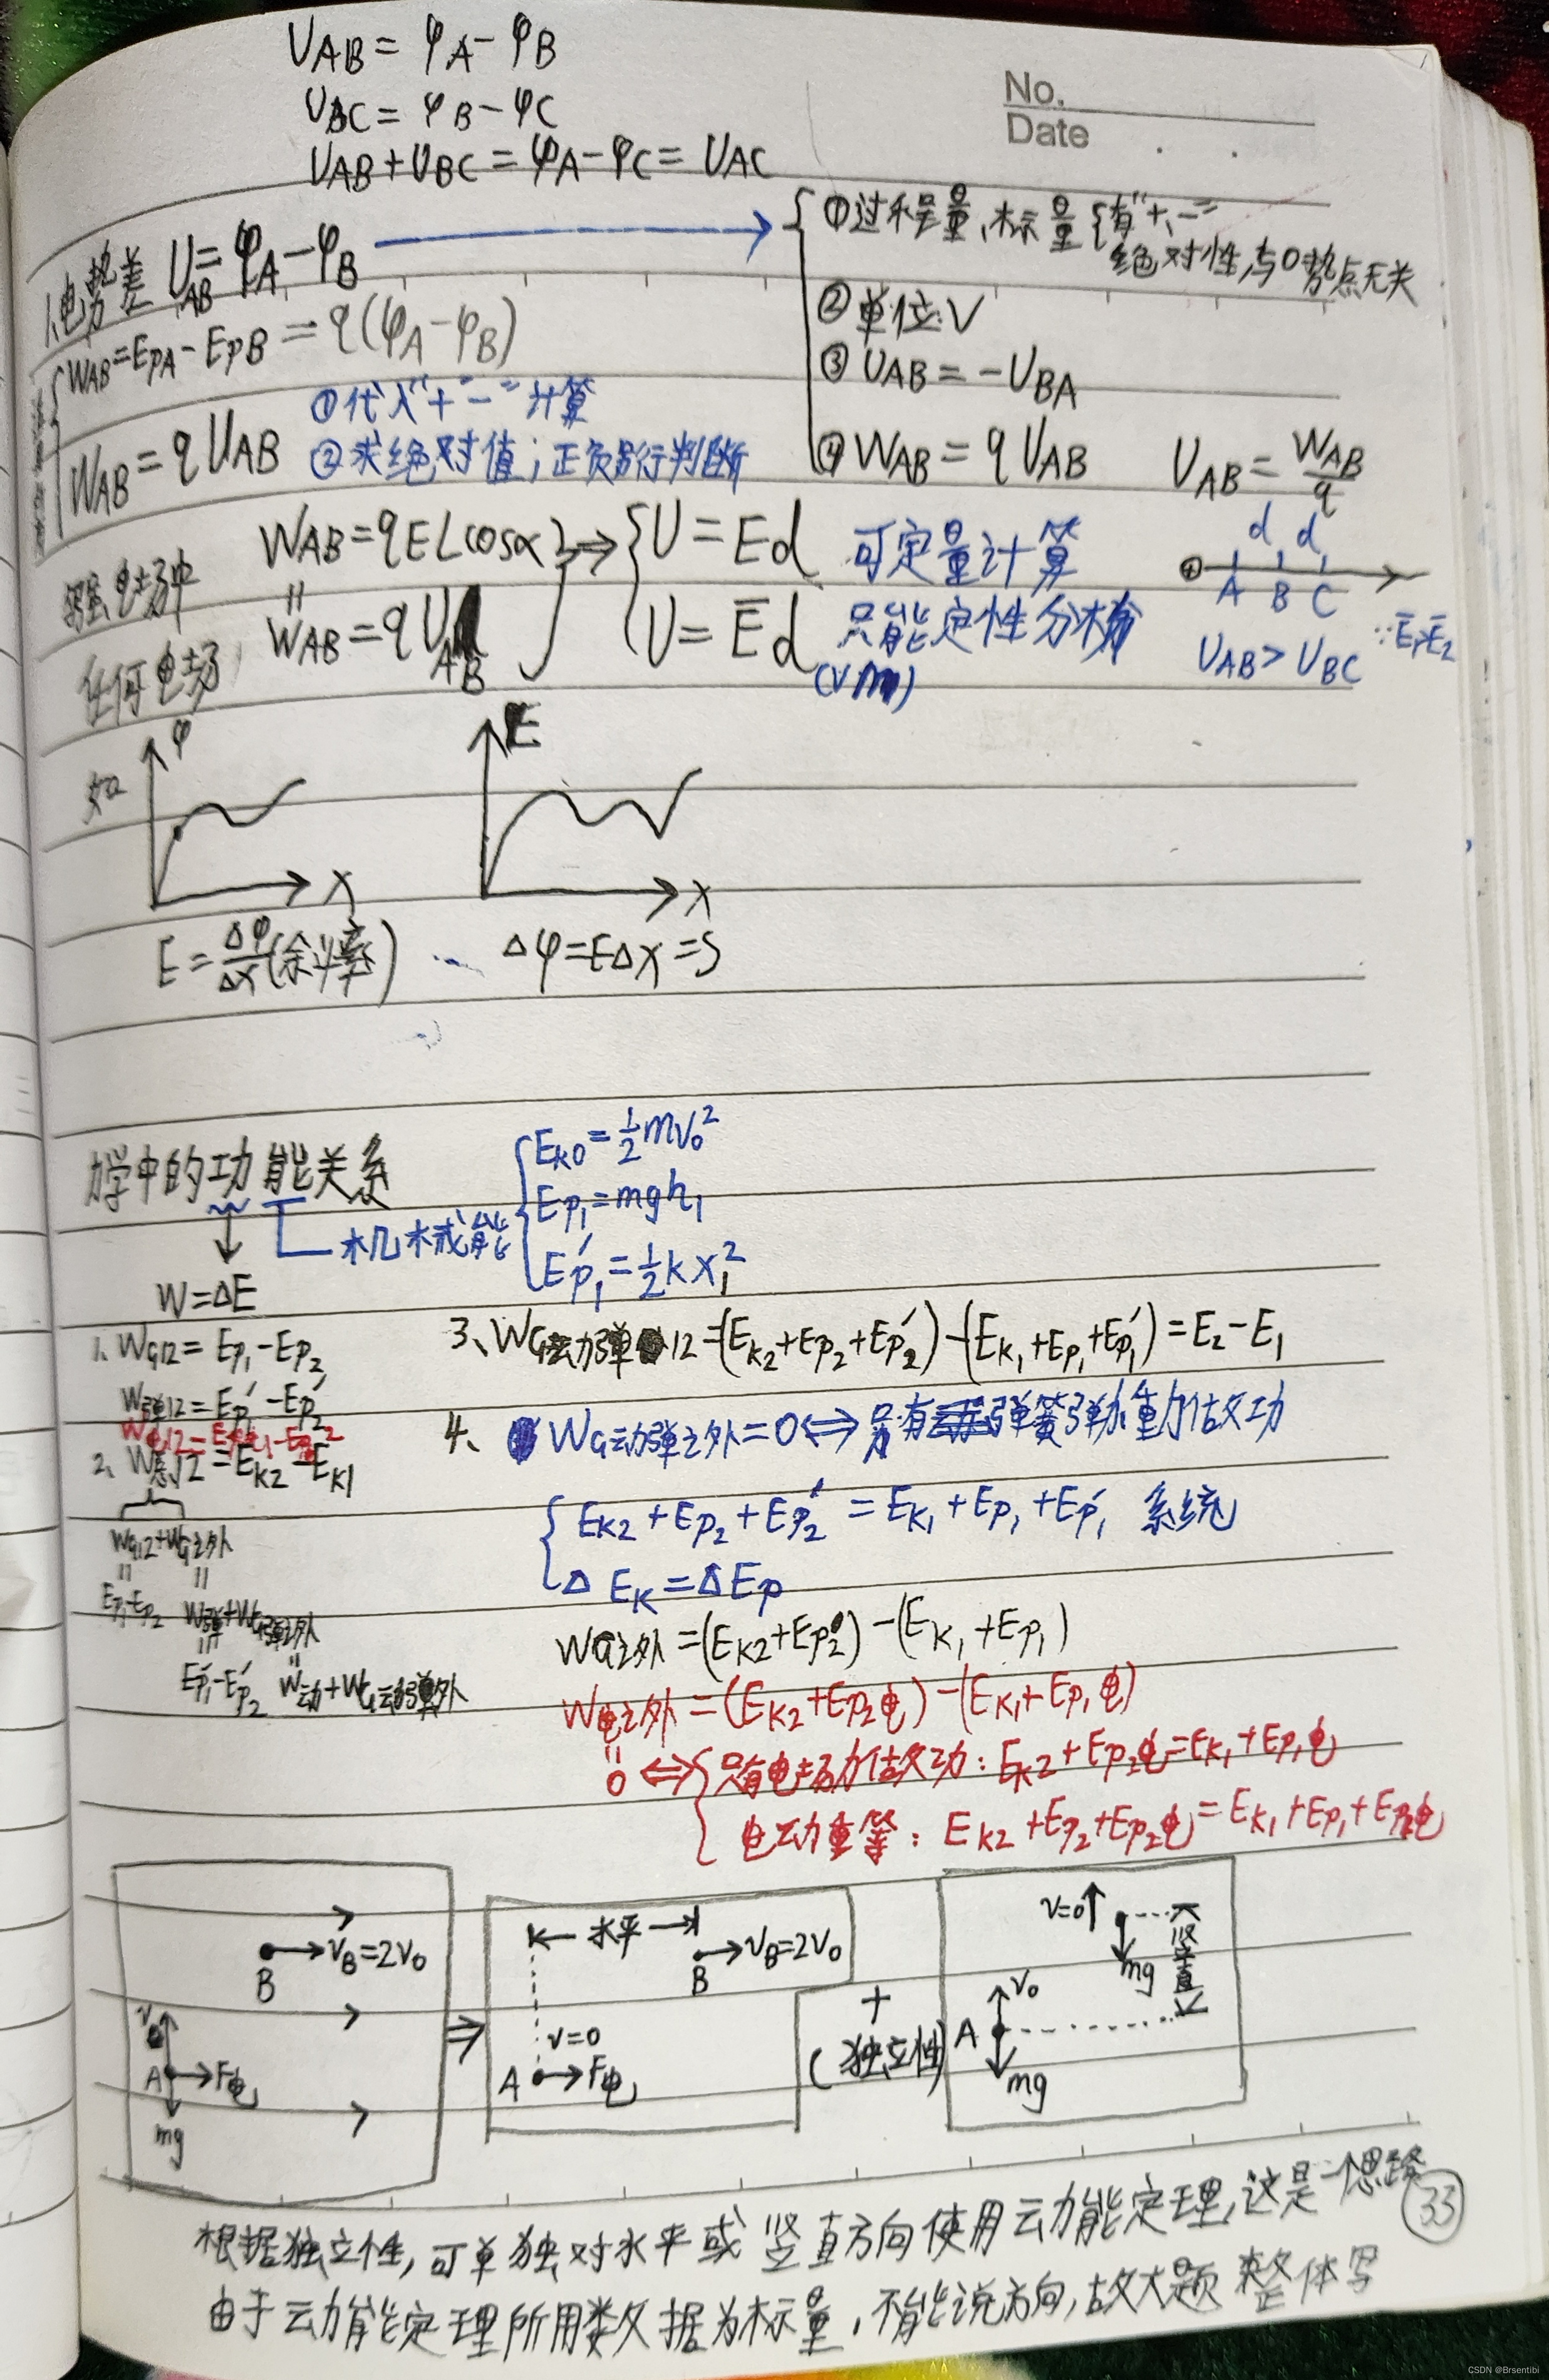 U_AB = φ_A - φ_B
U_BC = φ_B - φ_C
U_AB + U_BC = φ_A - φ_C = U_AC
No.
Date
1、电势差 U_AB = φ_A - φ_B
①过程量、标量 { 有"+、-"
绝对性,与0势点无关
②单位:V
③ U_AB = -U_BA
④ W_AB = q U_AB U_AB = W_AB/q
W_AB = E_PA - E_PB = q(φ_A - φ_B)
W_AB = q U_AB
①代入"+""-"计算
②求绝对值;正负另行判断
匀强电场中 W_AB = qELcosα
任何电场 W_AB = q U_AB
⇒ { U = Ed 可定量计算
U = E̅d 只能定性分析
(V/m)
d d
A B C
U_AB > U_BC ∵ E̅₁>E̅₂
如 φ x
E x
E = Δφ/Δx (斜率)
Δφ = EΔx = S
力学中的功能关系
机械能 { E_K0 = ½mv₀²
E_P₁ = mgh₁
E_P₁′ = ½kx₁²
W = ΔE
1、W_G12 = E_P₁ - E_P₂
W_弹12 = E_P₁′ - E_P₂′
2、W_总12 = E_K2 - E_K1
W_G12 + W_G之外
E_P₁ - E_P₂ W_弹 + W_G弹之外
E_P₁′ - E_P₂′
3、W_G动弹12 = (E_K₂ + E_P₂ + E_P₂′) - (E_K₁ + E_P₁ + E_P₁′) = E₂ - E₁
4、W_G动弹之外 = 0 ⇔ 只有弹簧弹力、重力做功
{ E_K2 + E_P₂ + E_P₂′ = E_K₁ + E_P₁ + E_P₁′ 系统
Δ E_K = Δ E_P
W_G之外 = (E_K2 + E_P2) - (E_K₁ + E_P₁)
W_电之外 = (E_K₂ + E_P₂电) - (E_K₁ + E_P₁电)
0 ⇔ { 只有电场力做功:E_K2 + E_P₂电 = E_K₁ + E_P₁电
电动重等:E_K2 + E_P₂ + E_P₂电 = E_K₁ + E_P₁ + E_P₁电
B v_B = 2v₀
v₀
A F电
mg
⇒
水平
B v_B = 2v₀
v=0
A F电
+
(独立性)
v=0
mg
竖直
v₀
A
mg
根据独立性,可单独对水平或竖直方向使用动能定理,这是一个思路
33
由于动能定理所用数据为标量,不能说方向,故大题整体写
CSDN @Brsentibi